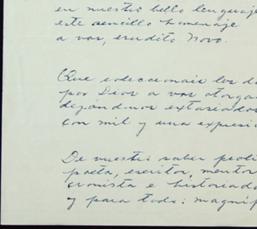 en nuestro bello lenguaje
este sencillo homenaje
a vos, erudito Novo.
Que coleccionais los do
por Dios a vos otorga
dejándonos extasiados
con mil y una expresio
De nuestro saber
poeta, escritor, mentor
cronista e historiado
y para todo: magníf